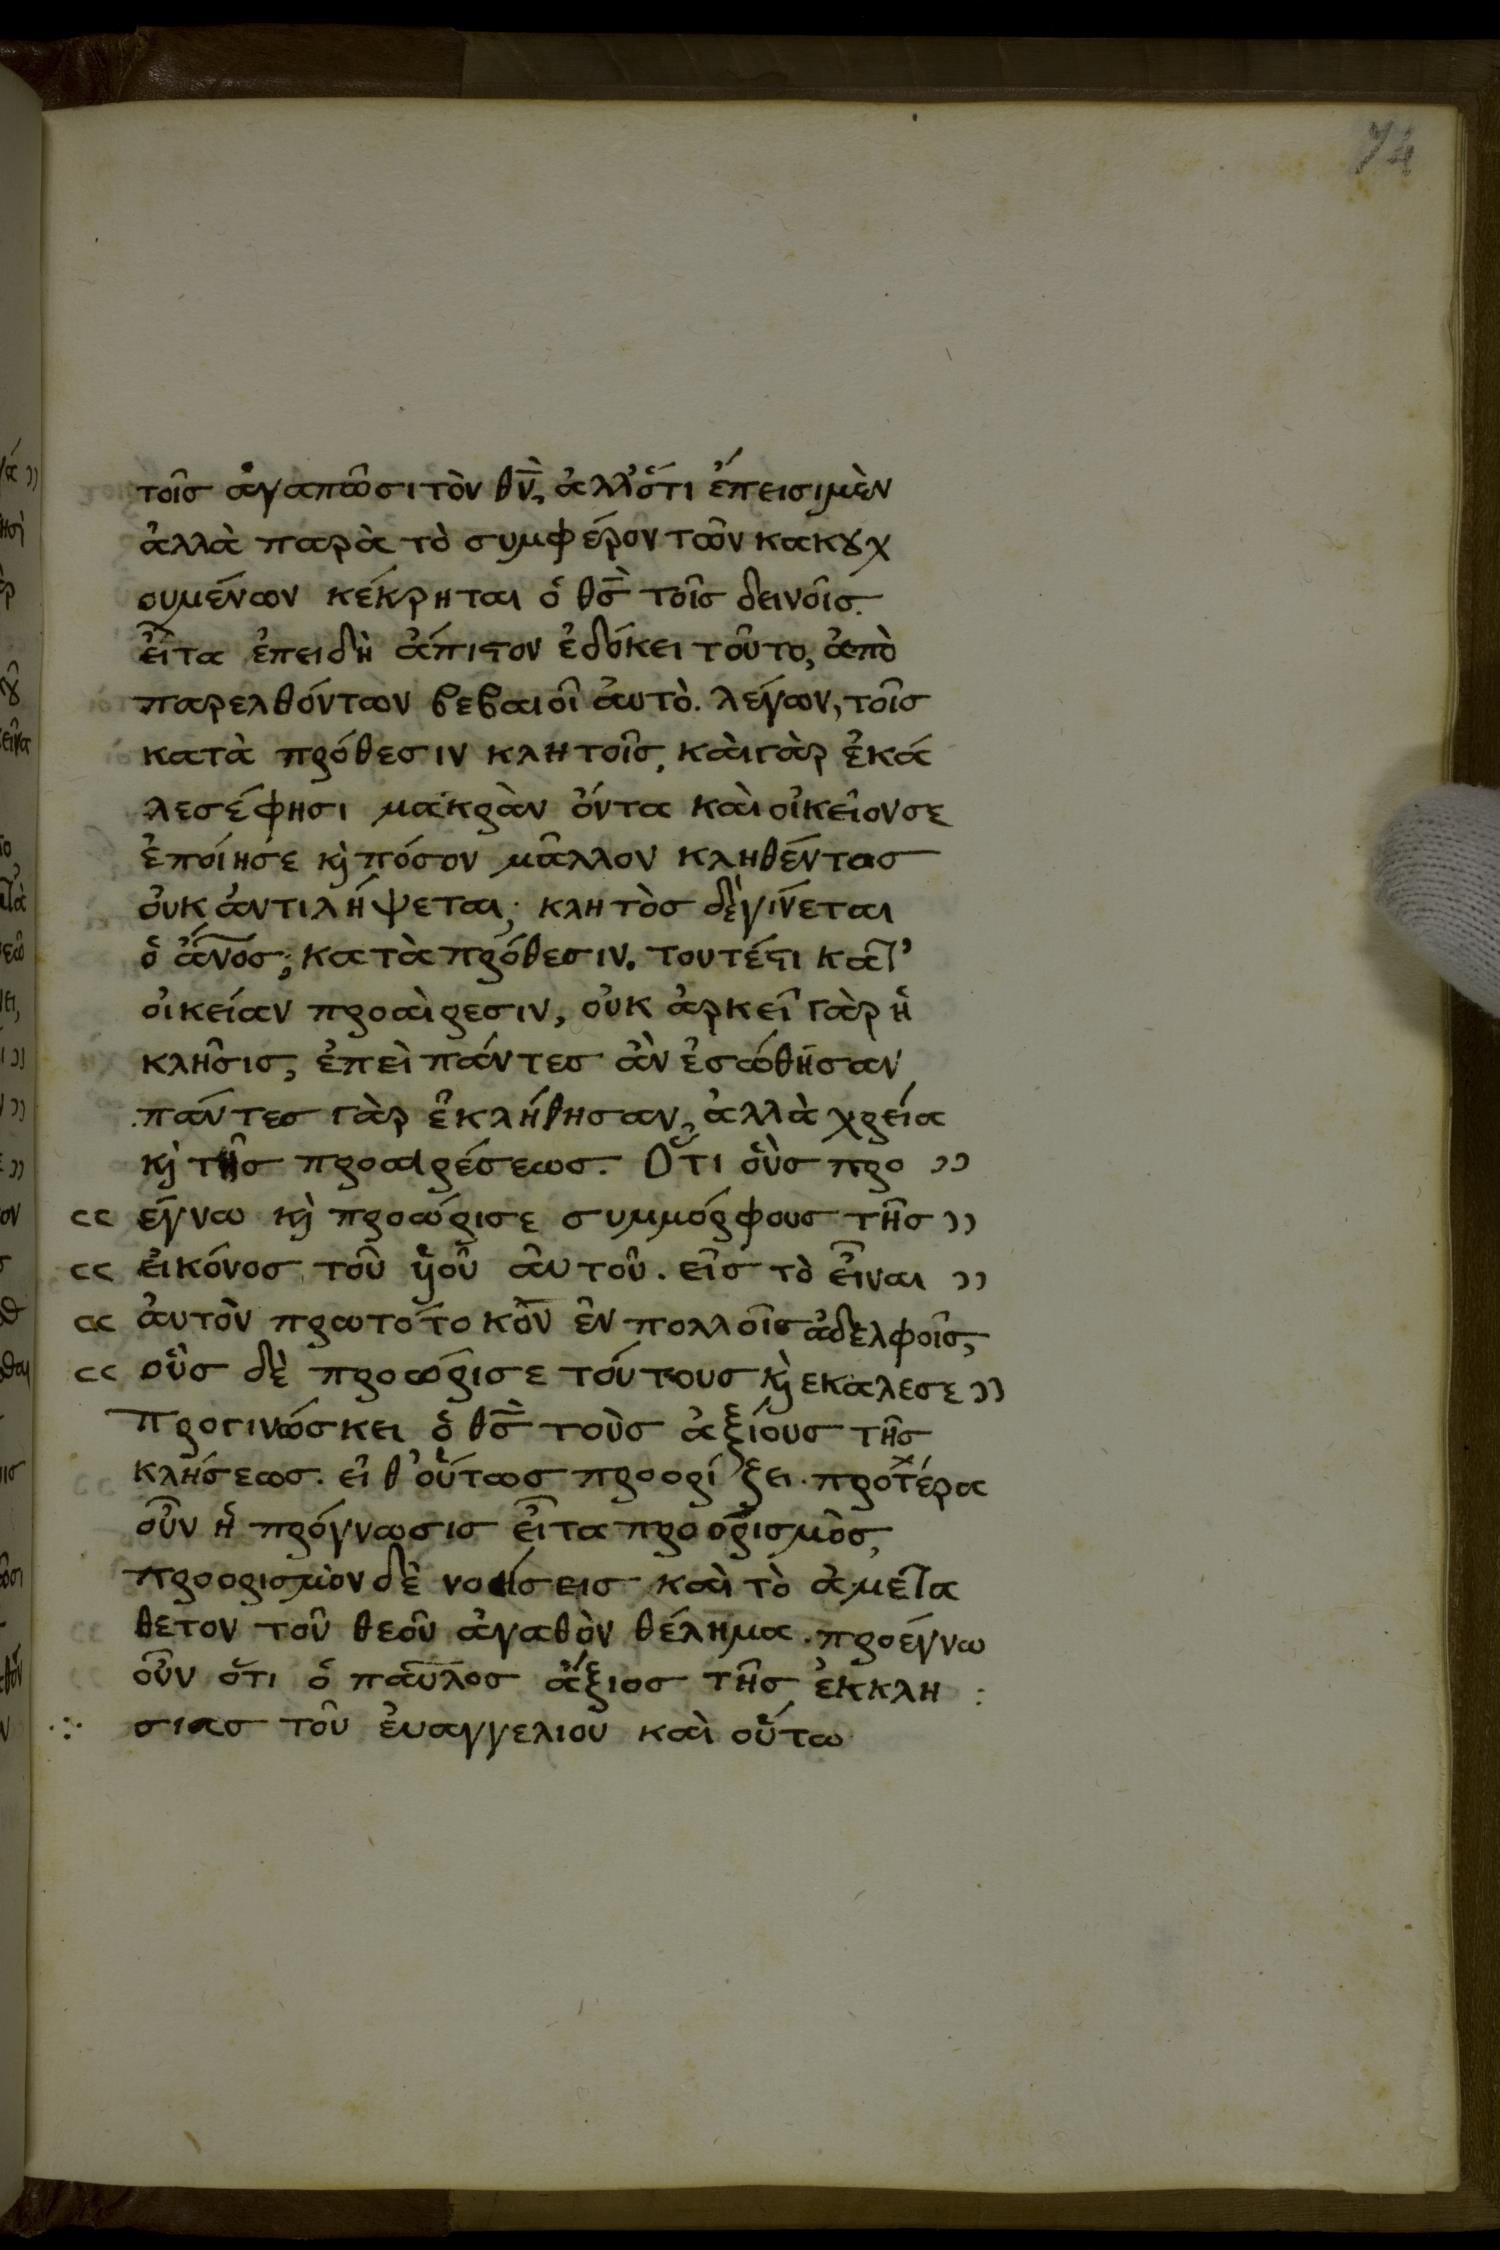 74
τοῖσ ἀγαπῶσι τὸν θν̅, ἀλλ' ὅτι ἔπεισι μὲν
ἀλλὰ παρὰ τὸ συμφέρον τῶν κακȣχ
ουμένων κέκρηται ὁ θσ̅ τοῖσ δεινοῖσ.
εἶτα ἐπειδὴ ἄπιϛον ἐδόκει τοῦτο, ἀπὸ
παρελθόντων βεβαιοῖ ἀυτὸ. λέγων, τοῖσ
κατὰ πρόθεσιν κλητοῖσ, κὰι γὰρ ἐκά
λεσέ φησι μακρὰν ὄντα κὰι οἰκεῖον σε
ἐποίησε κὶ πόσον μᾶλλον κληθέντασ
ὀυκ ἀντιλήψεται; κλητὸσ δὲ γίνεται
ὁ ἄνοσ̅; κατὰ πρόθεσιν. τουτέϛι κατ'
οἰκείαν προαίρεσιν, οὐκ ἀρκεῖ γὰρ ἡ
κλῆσισ, ἐπεὶ πάντεσ ἂν ἐσώθησαν
πάντεσ γὰρ ἐκλήθησαν, ἀλλὰ χρεία
κὶ τῆσ προαιρέσεωσ. Ὅτι οὓσ προ ))
(( έγνω κὶ προώρισε συμμόρφουσ τῆσ ))
(( εἰκόνοσ τοῦ ὑιοῦ ἀυτοῦ. εἰσ τὸ εἶναι ))
(( ἀυτὸν πρωτότοκον ἐν πολλοῖσ ἀδελφοῖσ,
(( οὓσ δὲ προώρισε τούτουσ κὶ εκάλεσε ))
προγινώσκει ὁ θσ̅ τοὺσ ἀξίουσ τῆσ
κλήσεωσ. εἶθ' οὕτωσ προορίζει. προτέρα
οὖν ἡ πρόγνωσισ εἶτα προορισμὸσ,
προορισμὸν δὲ νοήσεισ κὰι τὸ ἀμετα
θετον τοῦ θεοῦ ἀγαθὸν θέλημα. προέγνω
οὖν ὅτι ὁ παῦλοσ ἄξιοσ τῆσ ἐκκλη :
σιασ τοῦ ἐυαγγελιου κὰι οὕτω